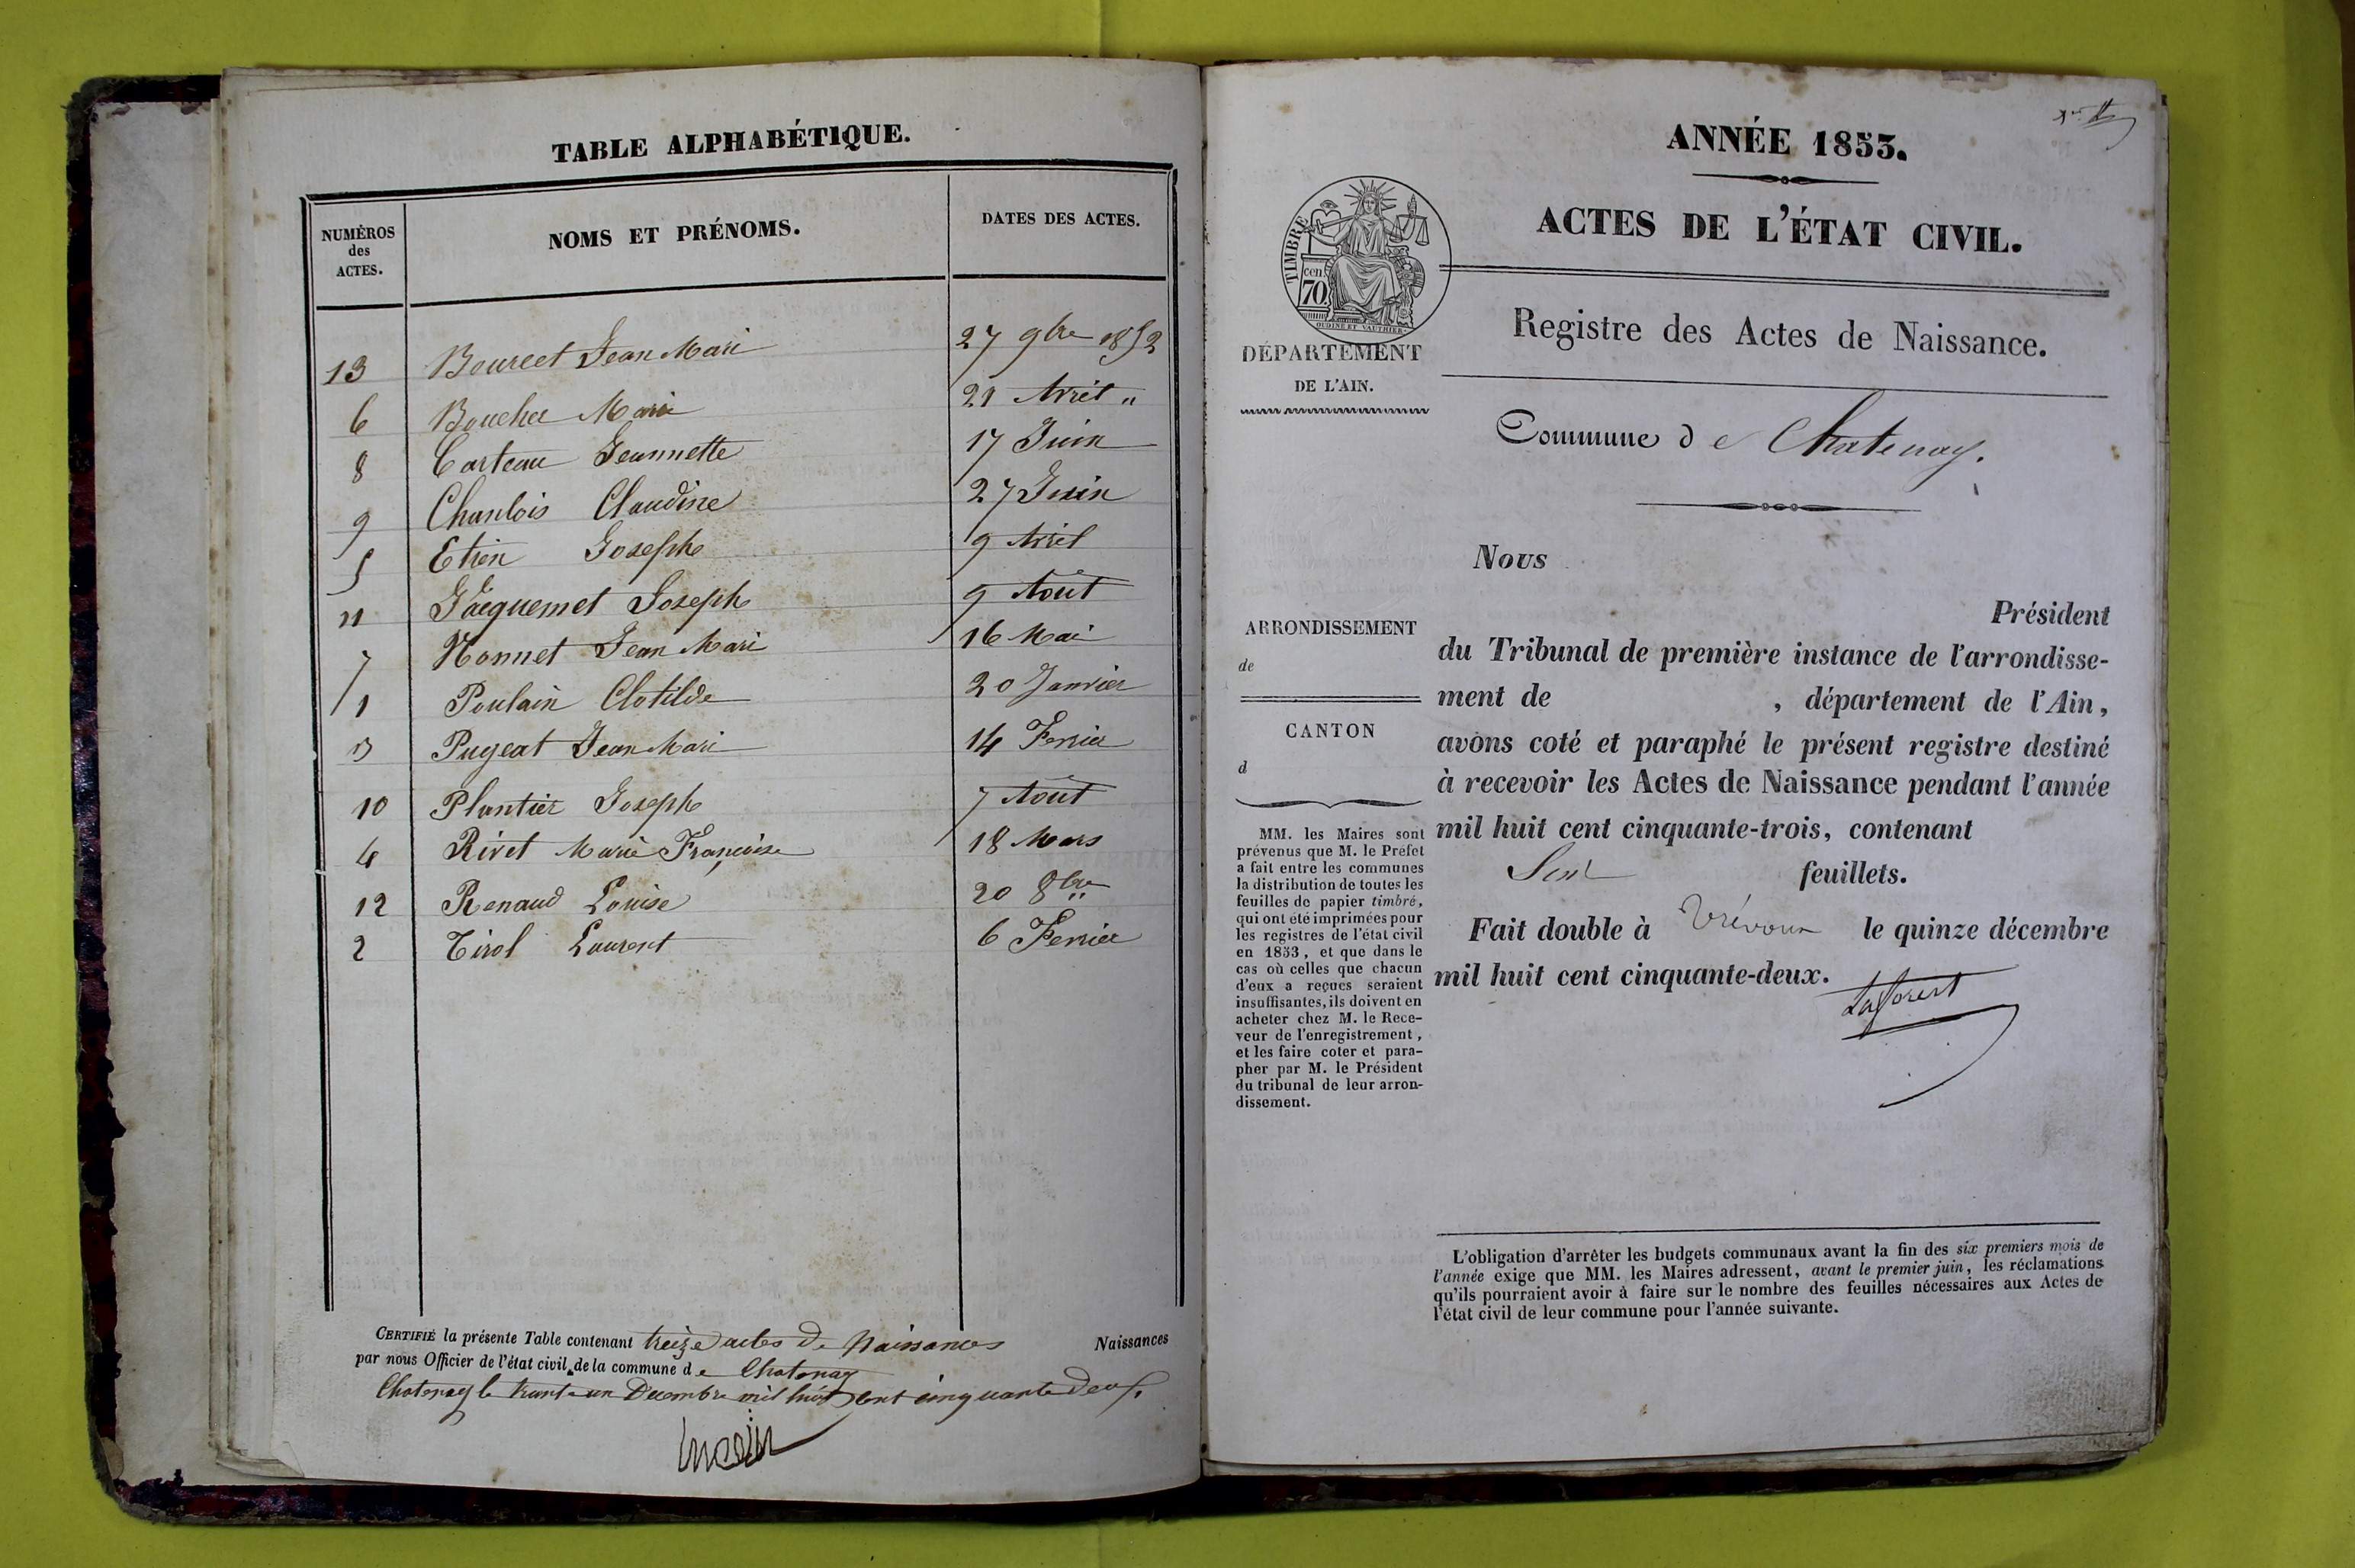 TABLE ALPHABÉTIQUE.
NUMÉROS des ACTES.
NOMS ET PRÉNOMS.
DATES DES ACTES.
13 Bourcet Jean Mari 27 9bre 1852
6 Bouchu Marie 21 Avril "
8 Carteau Jeannette 17 Juin
9 Chanlois Claudine 27 Juin
5 Etien Joseph 9 Avril
11 Jacquemet Joseph 9 Août
7 Monnet Jean Mari 16 Mai
1 Poulain Clotilde 20 Janvier
3 Pugeat Jean Mari 14 Fevrier
10 Plantier Joseph 7 Août
4 Rivet Marie Françoise 18 Mars
12 Renaud Louise 20 8bre
2 Tirol Laurent 6 Fevrier
CERTIFIÉ la présente Table contenant treize actes de Naissances Naissances
par nous Officier de l'état civil de la commune de Chatenay
Chatenay le trente un Decembre mil huit cent cinquante deux
ANNÉE 1853.
ACTES DE L'ÉTAT CIVIL.
TIMBRE
cen
70
OUDINÉ ET VAUTHIER
DÉPARTEMENT
DE L'AIN.
Registre des Actes de Naissance.
Commune de Chatenay.
Nous
Président
du Tribunal de première instance de l'arrondisse-
ment de , département de l'Ain,
avons coté et paraphé le présent registre destiné
à recevoir les Actes de Naissance pendant l'année
mil huit cent cinquante-trois, contenant
Sept feuillets.
Fait double à Trévoux le quinze décembre
mil huit cent cinquante-deux.
Laforest
ARRONDISSEMENT
de
CANTON
d
MM. les Maires sont
prévenus que M. le Préfet
a fait entre les communes
la distribution de toutes les
feuilles de papier timbré,
qui ont été imprimées pour
les registres de l'état civil
en 1853, et que dans le
cas où celles que chacun
d'eux a reçues seraient
insuffisantes, ils doivent en
acheter chez M. le Rece-
veur de l'enregistrement,
et les faire coter et para-
pher par M. le Président
du tribunal de leur arron-
dissement.
L'obligation d'arrêter les budgets communaux avant la fin des six premiers mois de
l'année exige que MM. les Maires adressent, avant le premier juin, les réclamations
qu'ils pourraient avoir à faire sur le nombre des feuilles nécessaires aux Actes de
l'état civil de leur commune pour l'année suivante.